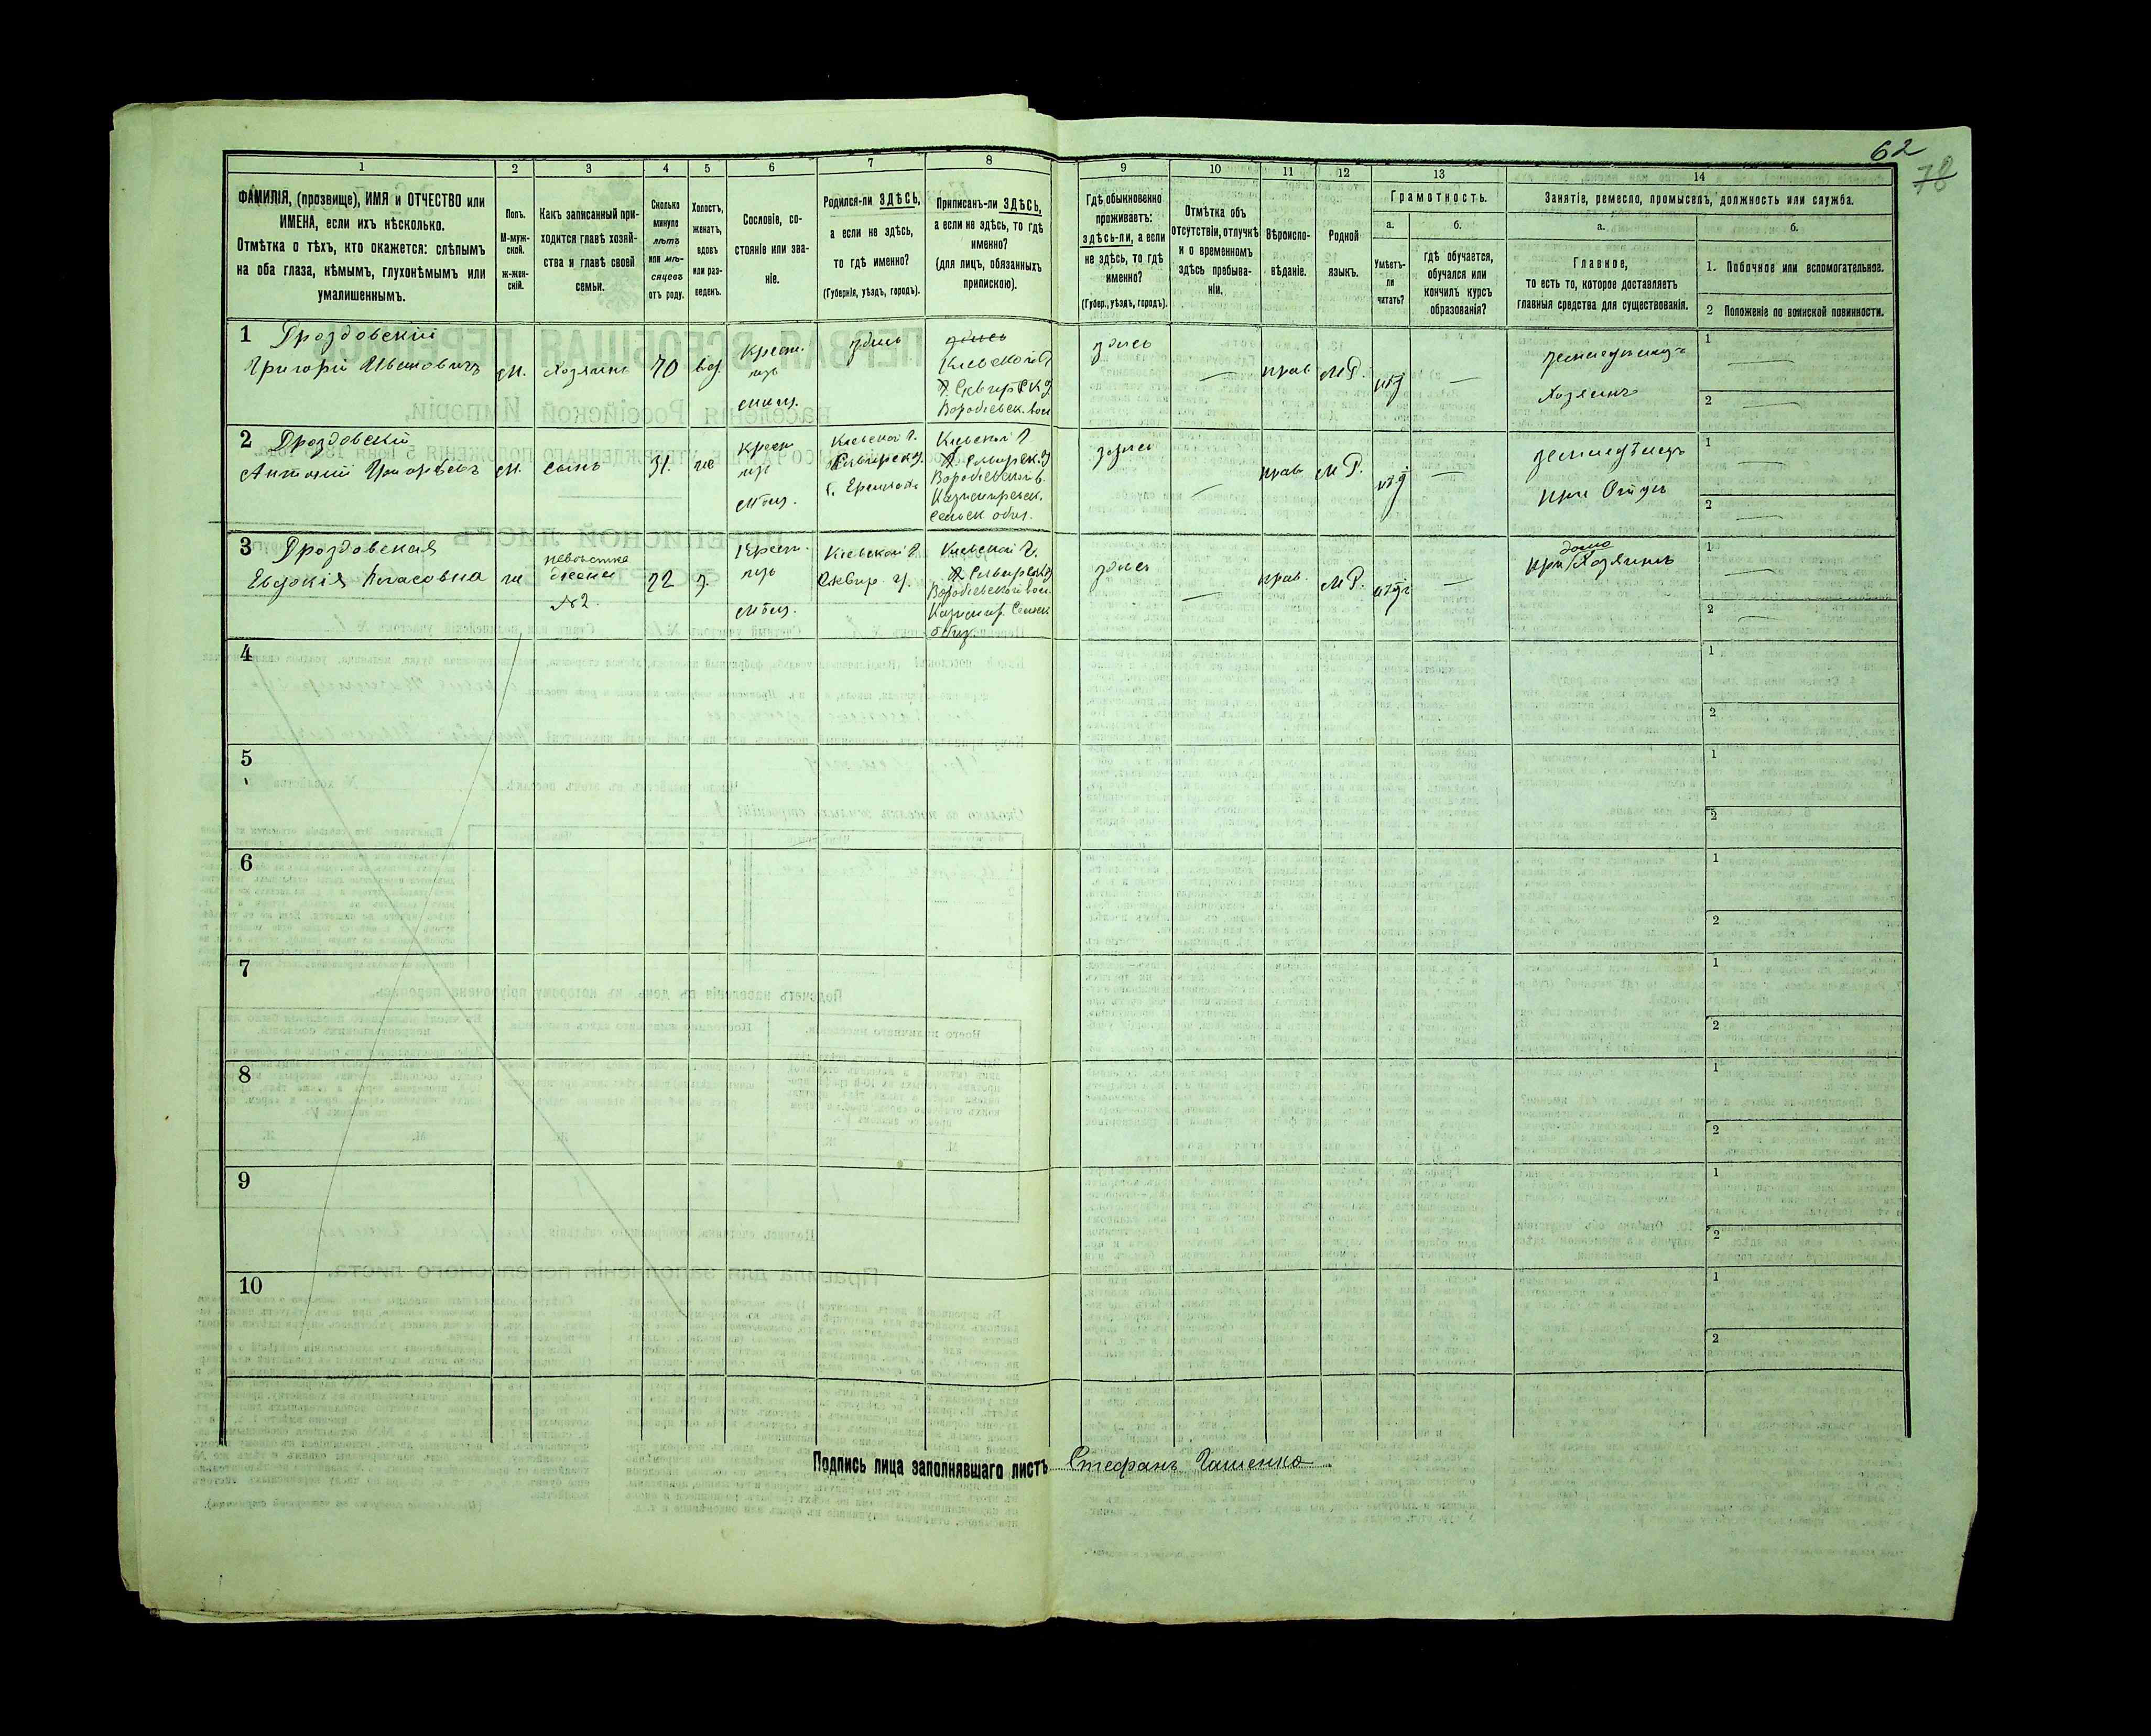 62
78
1
2
3
4
5
6
7
8
9
10
11
12
13
14
ФАМИЛІЯ, (прозвище), ИМЯ и ОТЧЕСТВО или
ИМЕНА, если ихъ нѣсколько.
Отмѣтка о тѣхъ, кто окажется: слѣпымъ
на оба глаза, нѣмымъ, глухонѣмымъ или
умалишеннымъ.
Полъ.
М-муж-
ской.
ж-жен-
скій.
Какъ записанный при-
ходится главѣ хозяй-
ства и главѣ своей
семьи.
Сколько
минуло
лѣтъ
или мѣ-
сяцевъ
отъ роду.
Холостъ,
женатъ,
вдовъ
или раз-
веденъ.
Сословіе, со-
стояніе или зва-
ніе.
Родился-ли ЗДѢСЬ,
а если не здѣсь,
то гдѣ именно?
(Губернія, уѣздъ, городъ).
Приписанъ-ли ЗДѢСЬ,
а если не здѣсь, то гдѣ
именно?
(для лицъ, обязанныхъ
припискою).
Гдѣ обыкновенно
проживаетъ:
здѣсь-ли, а если
не здѣсь, то гдѣ
именно?
(Губер., уѣздъ, городъ).
Отмѣтка объ
отсутствіи, отлучкѣ
и о временномъ
здѣсь пребыва-
ніи.
Вѣроиспо-
вѣданіе.
Родной
языкъ.
Грамотность.
а.
Умѣетъ-
ли
читать?
б.
гдѣ обучается,
обучался или
кончилъ курсъ
образованія?
Занятіе, ремесло, промыселъ, должность или служба.
а.
Главное,
то есть то, которое доставляетъ
главныя средства для существованія.
б.
1. Побочное или вспомогательное.
2 Положеніе по воинской повинности.
1 Дроздовскій
Григорій Ивановичъ
м.
Хозяинъ
70
вд.
Крест.
изъ
здѣсь
здѣсь
Кіевской г.
Сквирск у.
Воробіевск. вол
здѣсь
—
прав
М Р.
—
Хозяинъ
1 —
2 —
2 Дроздовскій
Антоній Григорьевъ
м.
сынъ
31.
же
Крест
изъ
Кіевской г.
Сквирск у.
Кіевской г
Сквирск. у
Воробіевской в.
Казимировск.
Сельск общ.
здѣсь
—
прав
М Р.
—
земледѣлецъ
при Отцѣ
1 —
2 —
3 Дроздовская
Евдокія Власовна
же
невѣстка
жена
№ 2.
22
з.
Крест.
изъ
Кіевской г.
Сквир. у.
Кіевской г.
Сквирск у
Воробіевской вол.
Казимир. Сельск
общ
здѣсь
—
прав.
М Р.
—
дома
при Хозяинѣ
1 —
2 —
4
1
2
5
1
2
6
1
2
7
1
2
8
1
2
9
1
2
10
1
2
Подпись лица заполнявшаго листъ Стефанъ